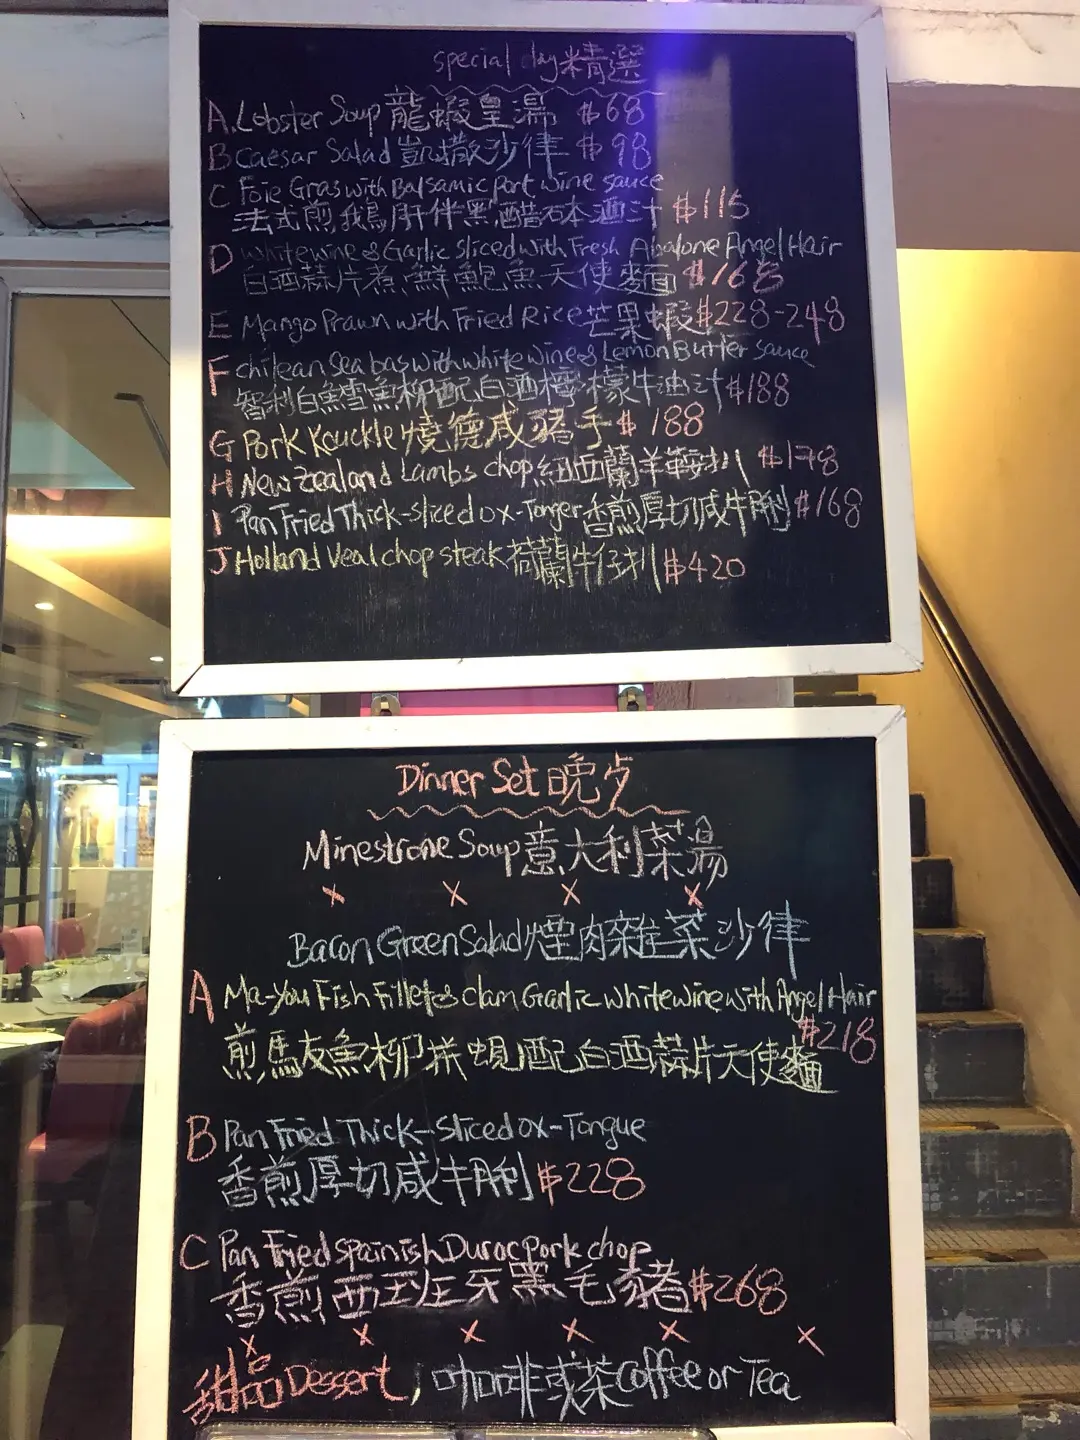 special day精選
A.Lobster Soup龍蝦皇湯 $68
B Caesar Salad 凱撒沙律 $98
C Foie Gras with Balsamic port wine sauce
法式煎鵝肝伴黑醋砵酒汁 $115
D white wine & Garlic Sliced with Fresh Abalone Angel Hair
白酒蒜片煮鮮鮑魚天使麵 $168
E Mango Prawn with Fried Rice芒果蝦$228-248
F chilean Sea bas with white wine & Lemon Butter sauce
智利白鱈魚柳配白酒檸檬牛油汁$188
G Pork Kauckle 燒德咸豬手$ 188
H New Zealand Lambs chop紐西蘭羊鞍扒 $178
I Pan Fried Thick-sliced ox-Tonger香煎厚切咸牛脷$168
J Holland Veal chop steak荷蘭牛仔扒$420
Dinner Set 晚歺
Minestrone Soup意大利菜湯
x x x x
Bacon Green Salad煙肉雜菜沙律
A Ma-you Fish Fillet & clam Garlic white wine with Angel Hair
$218
煎馬友魚柳拼蜆配白酒蒜片天使麵
B Pan Fried Thick-Sliced ox-Tongue
香煎厚切咸牛脷$228
C Pan Fried Spainish Duroc pork chop
香煎西班牙黑毛豬$268
x x x x x x
甜品Dessert, 咖啡或茶Coffee or Tea